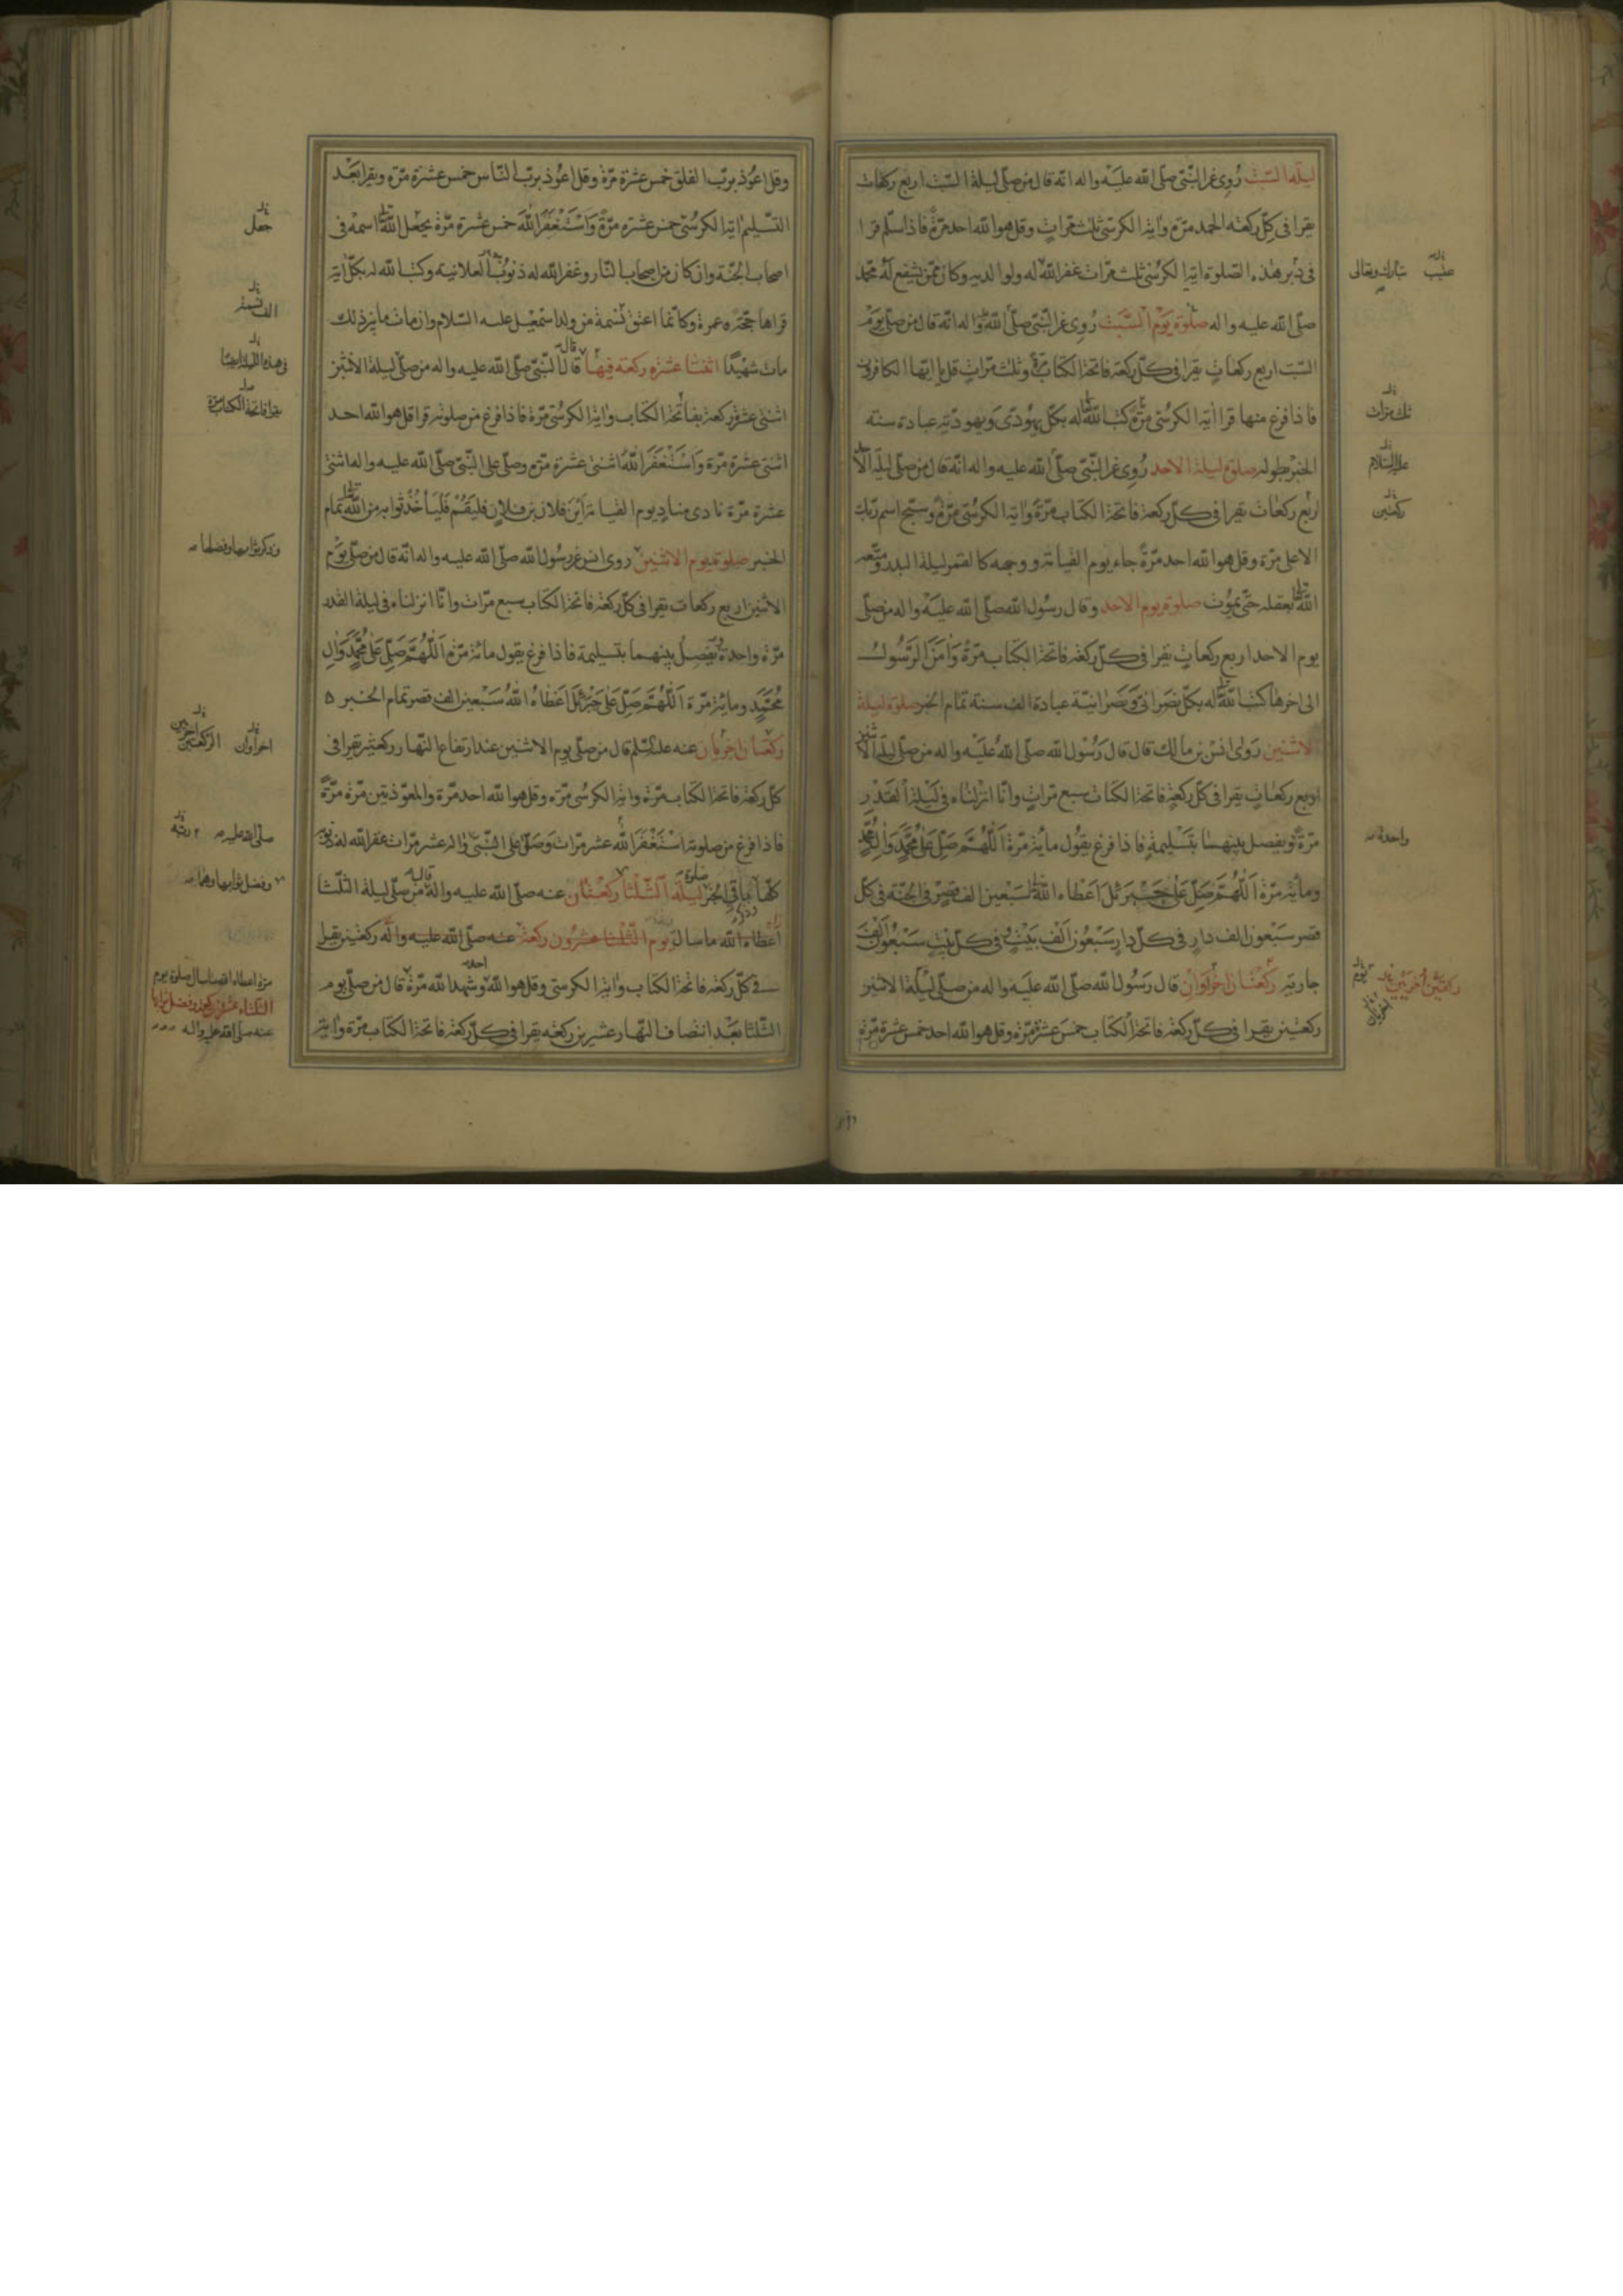 ليلة السبت رُوِي عن النبّي صلّى الله عليه واله انّه قال من صلّى ليلة السّبت اربع ركعات
يقرا فى كلّ ركعة الحمد مرّة واية الكرسّي ثلث مّرات وقل هو الله احد مرّة فاذا سلّم قرا
فى دبر هذه الصّلوة اية الكرسّي ثلث مّرات غفر الله له ولوالديه وكان ممّن يشفع له محمّد
صلّى الله عليه واله صلوة يوم السّبت رُوِي عن النّبي صلّى الله واله انّه قال من صلّى يوم
السّبت اربع ركعات يقرا فى كلّ ركعة فاتحة الكتاب وثلث مرّات قل يا ايّها الكافرون
فاذا فرغ منها قرا اية الكرسّي مرّة كتب الله له بكلّ يهُودىّ ويهوديّة عبادة سنة
الخبر بطوله صلوة ليلة الاحد رُوِي عن النّبىّ صلّى الله عليه واله انّه قال من صلّى ليلة الا
اربع ركعات يقرا فى كلّ ركعة فاتحة الكتاب مّرة واية الكرسّي مرّة وسبّح اسم ربّك
الاعلى مرّة وقل هو الله احد مرّة جاء يوم القيامة ووجهه كالقمر ليلة البدر ومتّعه
الله بعقله حتّى يموت صلوة يوم الاحد وقال رسُول الله صلّى الله عليه واله من صلّى
يوم الاحد اربع ركعات يقرا فى كلّ ركعة فاتحة الكتاب مرّة وامن الرّسُول
الى اخرها كتب الله له بكلّ نصرانىّ ونصرانيّة عبادة الف سنة تمام الخبر صلوة ليلة
الاثنين روى انس بن مالك قال قال رسُول الله صلّى الله عليه واله من صلّى ليلة الاثنين
اربع ركعات يقرا فى كلّ ركعة فاتحة الكتاب سبع مّرات وانّا انزلناه فى ليلة القدر
مرّة ويفصل بينهما بتسليمة فاذا فرغ يقُول مائة مرّة اَللّهُمَّ صَلِّ عَلى مُحَمَّدٍ وَالِ مُحَمَّدٍ
ومائة مرّة اَللّهُمَّ صَلِّ عَلى جَبْرَئيل اعطاه الله سبعين الف قصر فى الجنّة فى كلّ
قصر سبعون الف دار فى كلّ دار سبعون الف بيت فى كلّ بيت سبعُون الف
جارية ركعتان اخراوان قال رسُول الله صلّى الله عليه واله من صلّى ليلة الاثنين
ركعتين يقرا فى كلّ ركعة فاتحة الكتاب خمس عشرة مرّة وقل هو الله احد خمس عشرة مرّة
تبارك وتعالى
ثلث مرّات
عليه السّلام
ركعتين
واحدة
ركعتين اخريين
يوم
اخريان
وقل اعُوذ بربّ الفلق خمس عشرة مرّة وقل اعُوذ بربّ النّاس خمس عشرة مرّة ويقرا بعد
التّسليم اية الكرسّي خمس عشرة مرّة وَاسْتَغْفَرَ الله خمس عشرة مرّة يجعل الله اسمه فى
اصحاب الجنّة وان كان من اصحاب النّار وغفر الله له ذنوب العلانية وكتب الله له بكلّ اية
قراها حجّة وعمرة وكانّما اعتق نسمة من ولد اسمعيل عليه السّلام وان مات ما بين ذلك
مات شهيدًا اثنتا عشرة ركعة فيها قال النّبىّ صلّى الله عليه واله من صلّى ليلة الاثنين
اثنتى عشرة ركعة بفاتحة الكتاب واية الكرسّي مّرة فاذا فرغ من صلوته قرا قل هو الله احد
اثنتى عشرة مرّة وَاسْتَغْفَرَ الله اثنتى عشرة مرّة وصلّى على النّبىّ صلّى الله عليه واله اثنتى
عشرة مّرة نادى مناد يوم القيامة اَيْنَ فلان بن فلان فليقُمْ فليأخُذ ثوابه من الله تمام
الخبر صلوة يوم الاثنين روى انس عن رسُول الله صلّى الله عليه واله انّه قال من صلّى يوم
الاثنين اربع ركعات يقرا فى كلّ ركعة فاتحة الكتاب سبع مّرات وانّا انزلناه فى ليلة القدر
مّرة واحدة يفصل بينهما بتسليمة فاذا فرغ يقول مائة مرّة اَللّهُمَّ صَلِّ عَلى مُحَمَّدٍ وَالِ
مُحَمَّدٍ ومائة مرّة اَللّهُمَّ صَلِّ عَلى جَبْرَئيل اعطاه الله سبعين الف قصر تمام الخبر
ركعتان اخريان عنه قال من صلّى يوم الاثنين عند ارتفاع النّهار ركعتين يقرا فى
كلّ ركعة فاتحة الكتاب مرّة واية الكرسّي مرّة وقل هو الله احد مرّة والمعوّذتين مرّة مرّة
فاذا فرغ من صلوته اسْتَغْفَرَ الله عشر مرّات وصلّى على النّبىّ واله عشر مرّات غفر الله له ذنوبه
كلّها باقى الخبر صلوة ليلة الثّلثا ركعتان عنه صلّى الله عليه واله قال من صلّى ليلة الثّلثا
اعطاه الله ما سال يوم الثّلثا عشرون ركعة عنه صلّى الله عليه واله ركعتين يقرا
فى كلّ ركعة فاتحة الكتاب واية الكرسّي وقل هو الله وشهد الله مرّة قال من صلّى يوم
الثّلثا بعد انتصاف النّهار عشرين ركعة يقرا فى كلّ ركعة فاتحة الكتاب مرّة واية
جعل
الف نسمة
فى هذه الليلة ايضًا
يقرا فاتحة الكتاب مرّة
وذكر ثوابها وفضلها
اخراوان
الركعتين اخريين
صلى الله عليه
ربّه
وفضل ثوابها وهما
مرّة اعطاه الله ما سال صلوة يوم
الثلثاء عشرون ركعة وفضل ثوابها
عنه صلى الله عليه واله